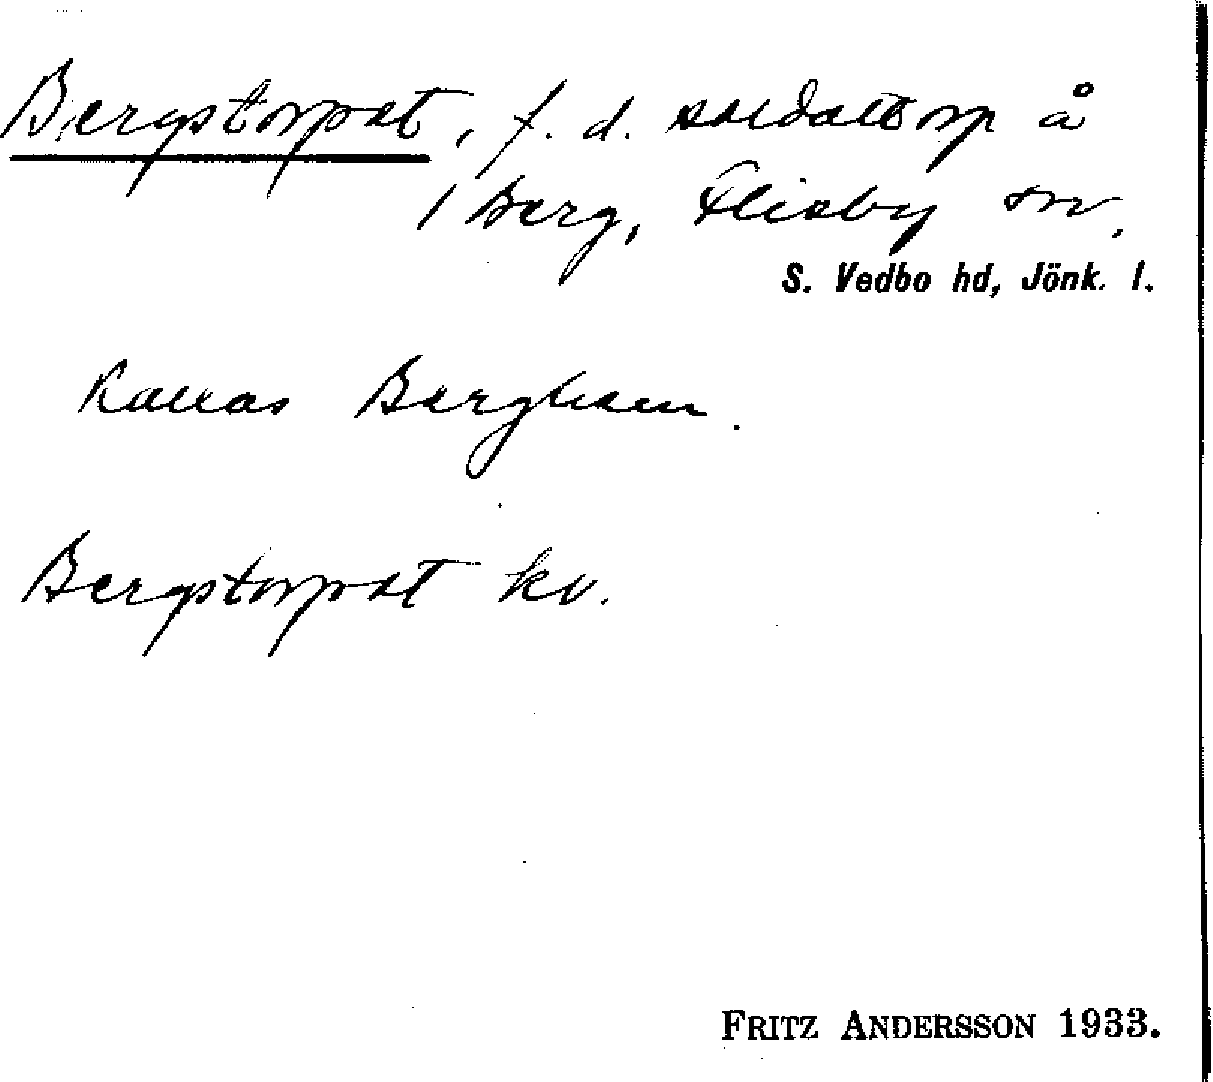 Bergstorpet, f. d. soldattorp å
1 Berg, Flisby sn.
S. Vedbo hd, Jönk. l.
Kallas Berghem.
Bergstorpet kv.
FRITZ ANDERSSON 1933.